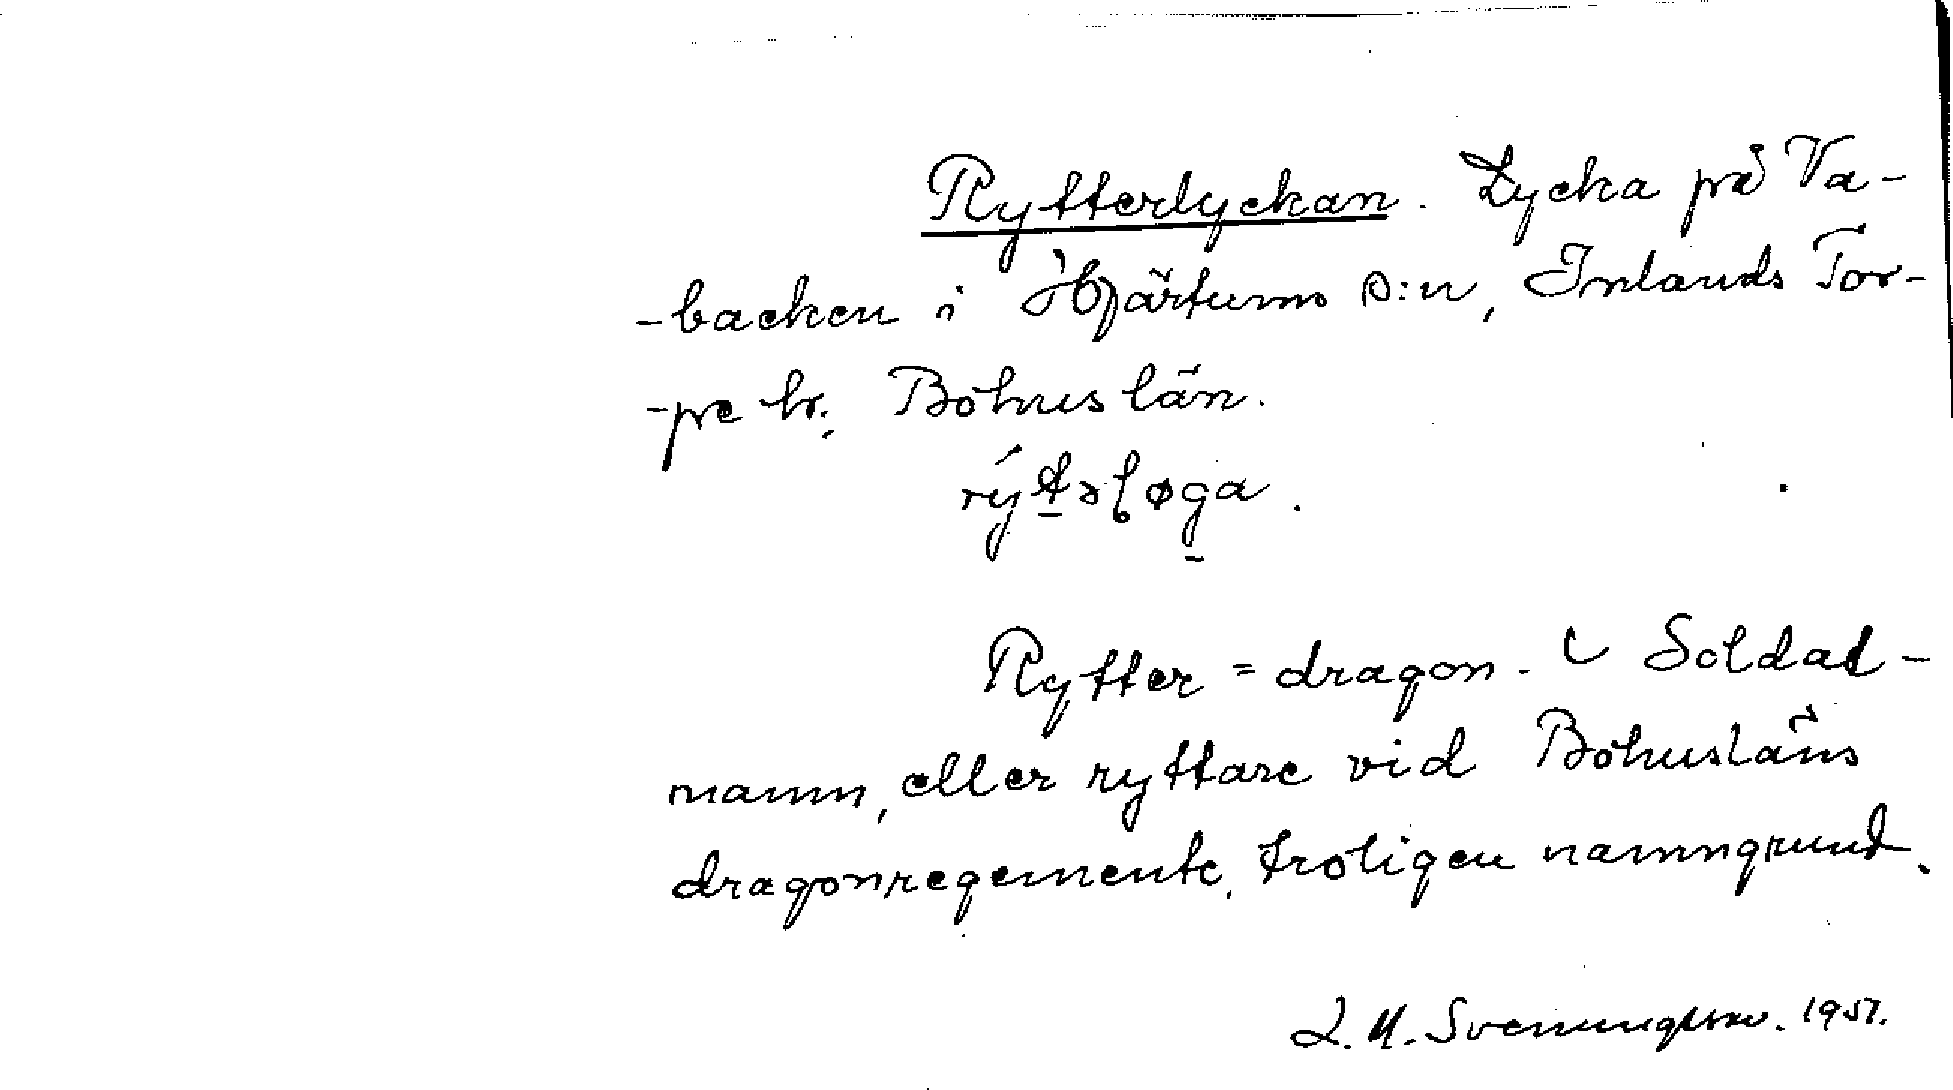 Rytterlyckan. Lycka på Va-
-backen i Hjärtums s:n, Inlands Tor-
-pe hr, Bohuslän.
rýtəɭøga.
Rytter = dragon. Soldat-
namn, eller ryttare vid Bohusläns
dragonregemente, troligen namngrund.
Svenungsson. 1957.